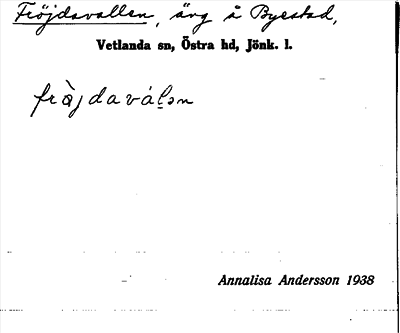 Fröjdavallen, äng å Byestad,
Vetlanda sn, Östra hd, Jönk. l.
frὰjdavál̠ən
Annalisa Andersson 1938